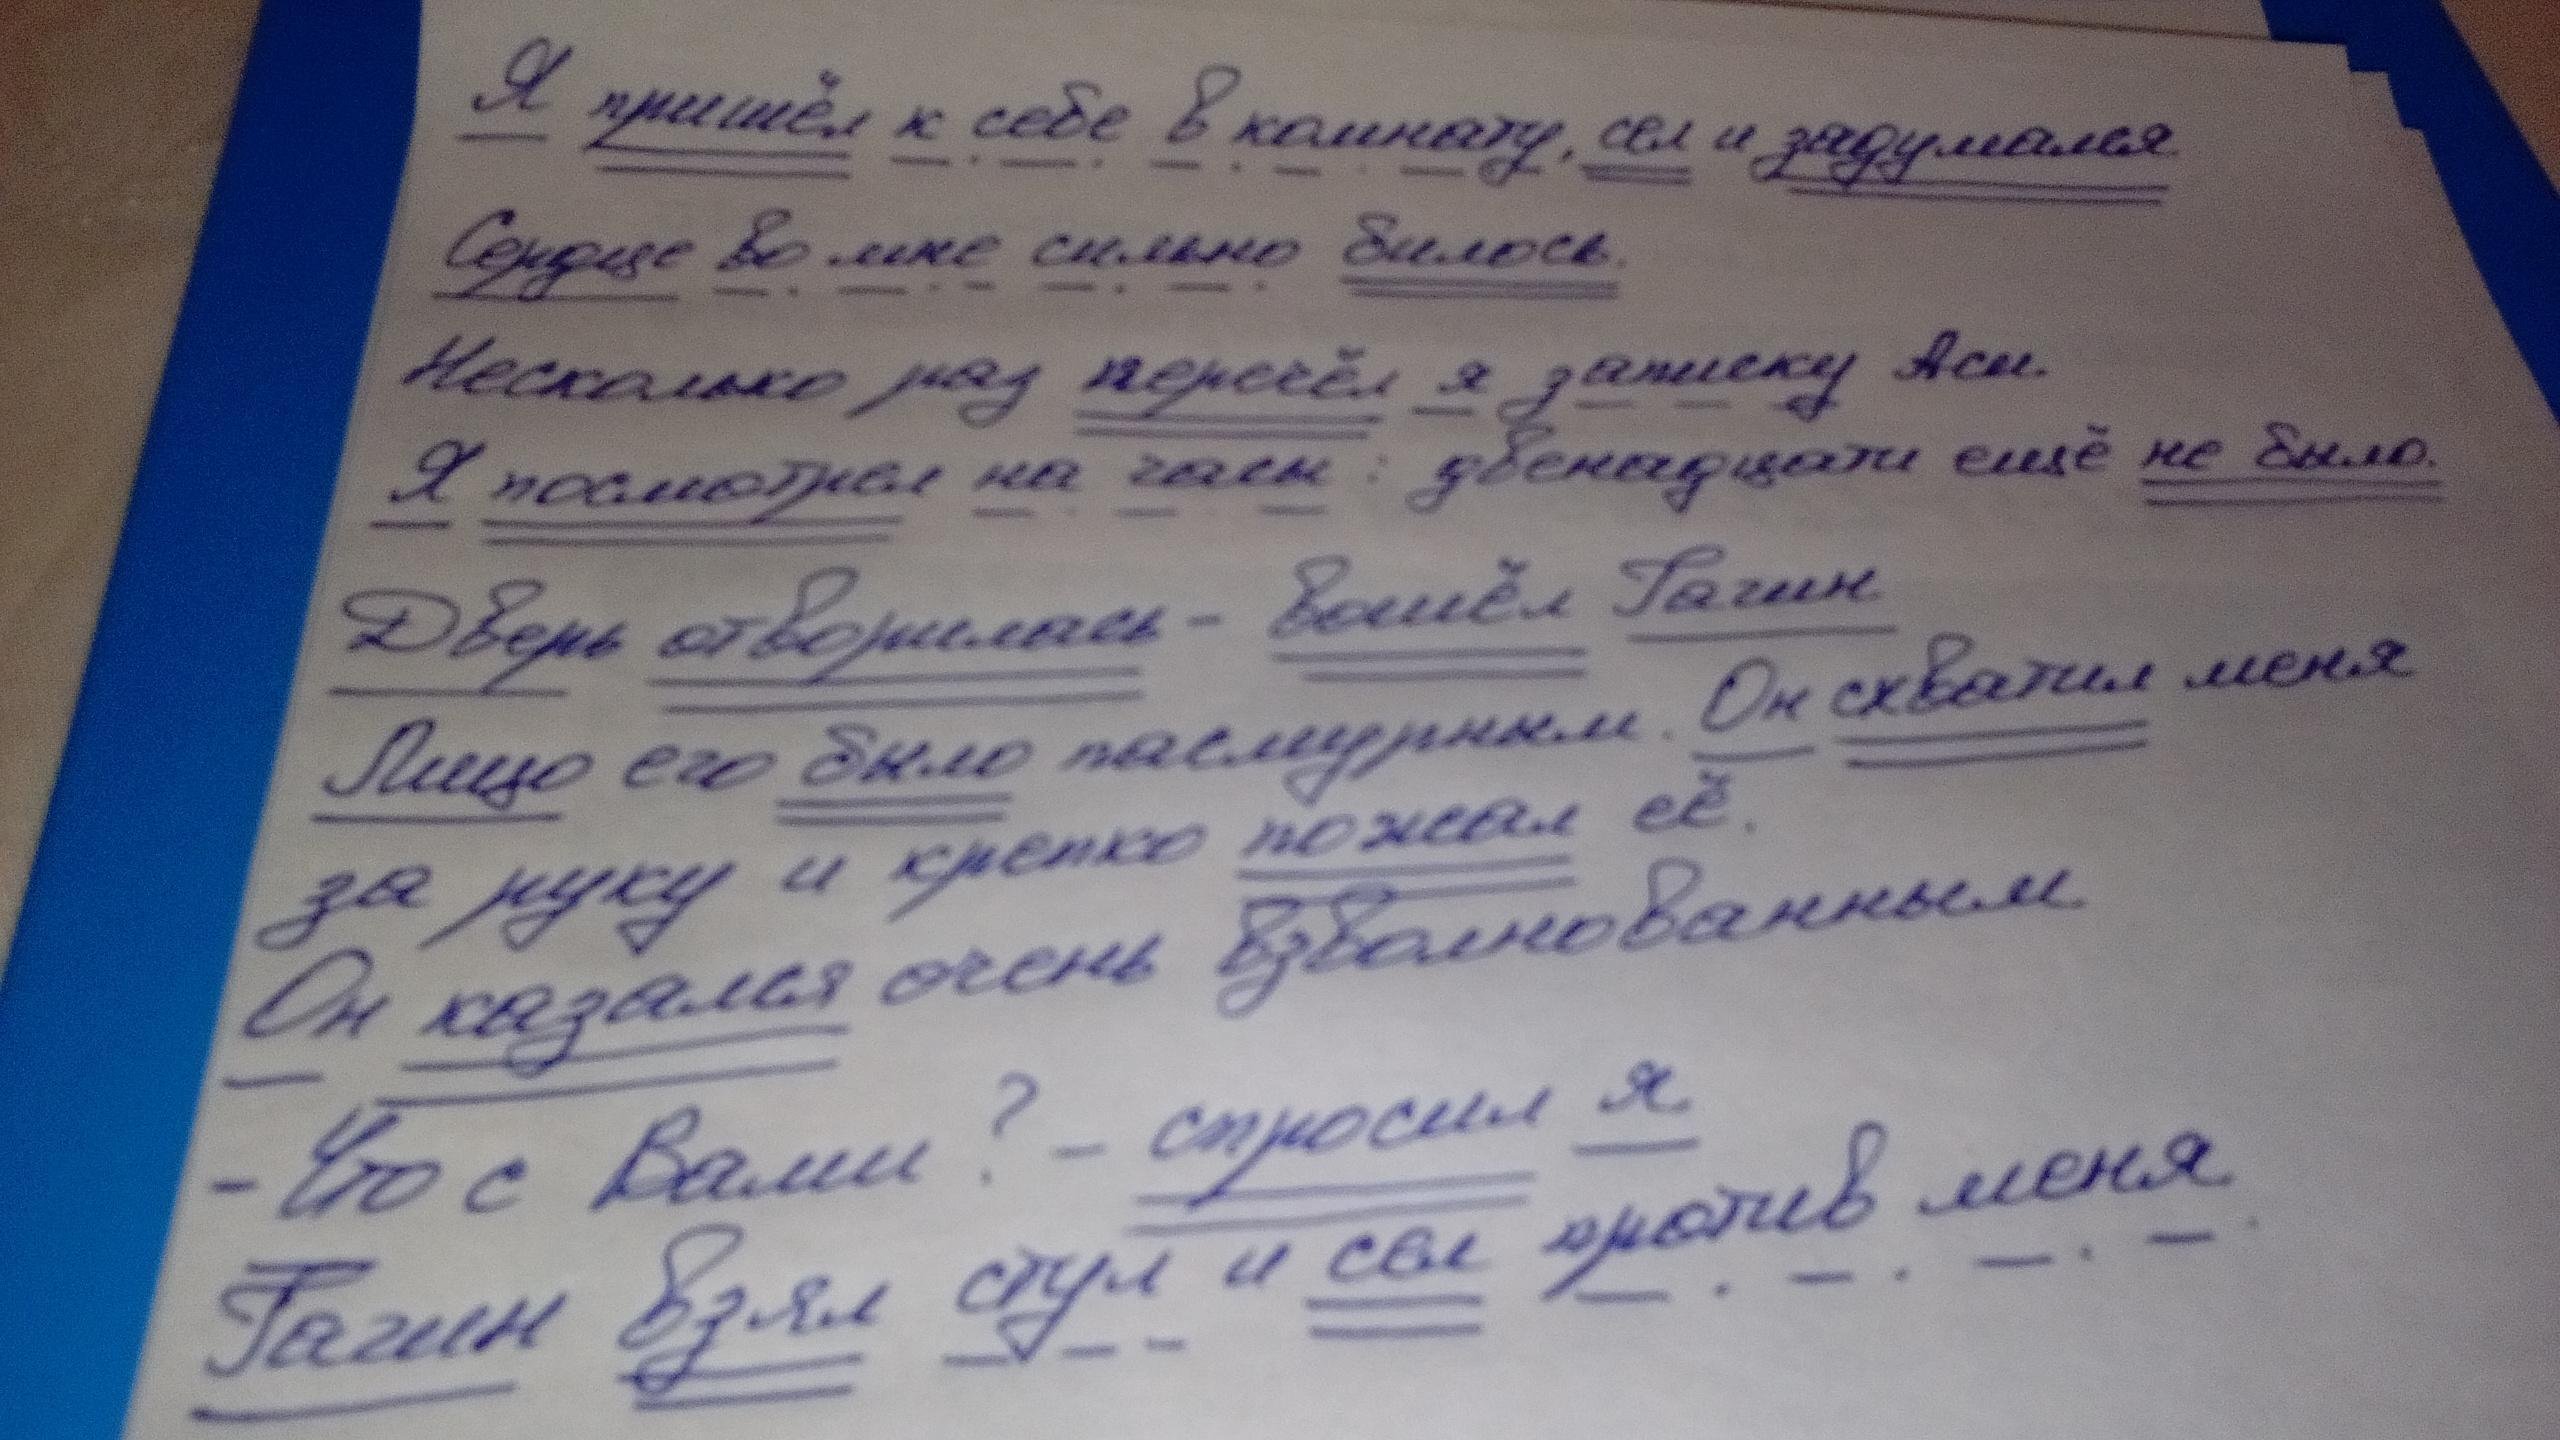 Я пришёл к себе в комнату, сел и задумался.
Сердце во мне сильно билось.
Несколько раз перечёл я записку Аси.
Я посмотрел на часы: двенадцати ещё не было.
Дверь отворилась - вошёл Гагин
Лицо его было пасмурным. Он схватил меня
за руку и крепко пожал её.
Он казался очень взволнованным
- Что с Вами? - спросил я.
Гагин взял стул и сел против меня.